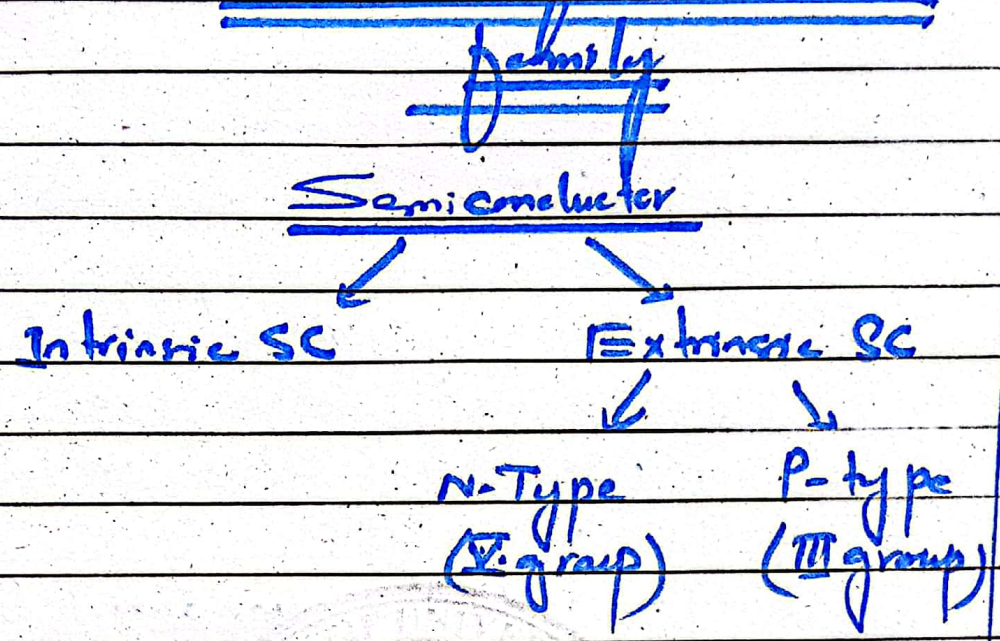 family
Semiconductor
Intrinsic SC Extrinsic SC
N-Type P-type
(V-group) (III group)